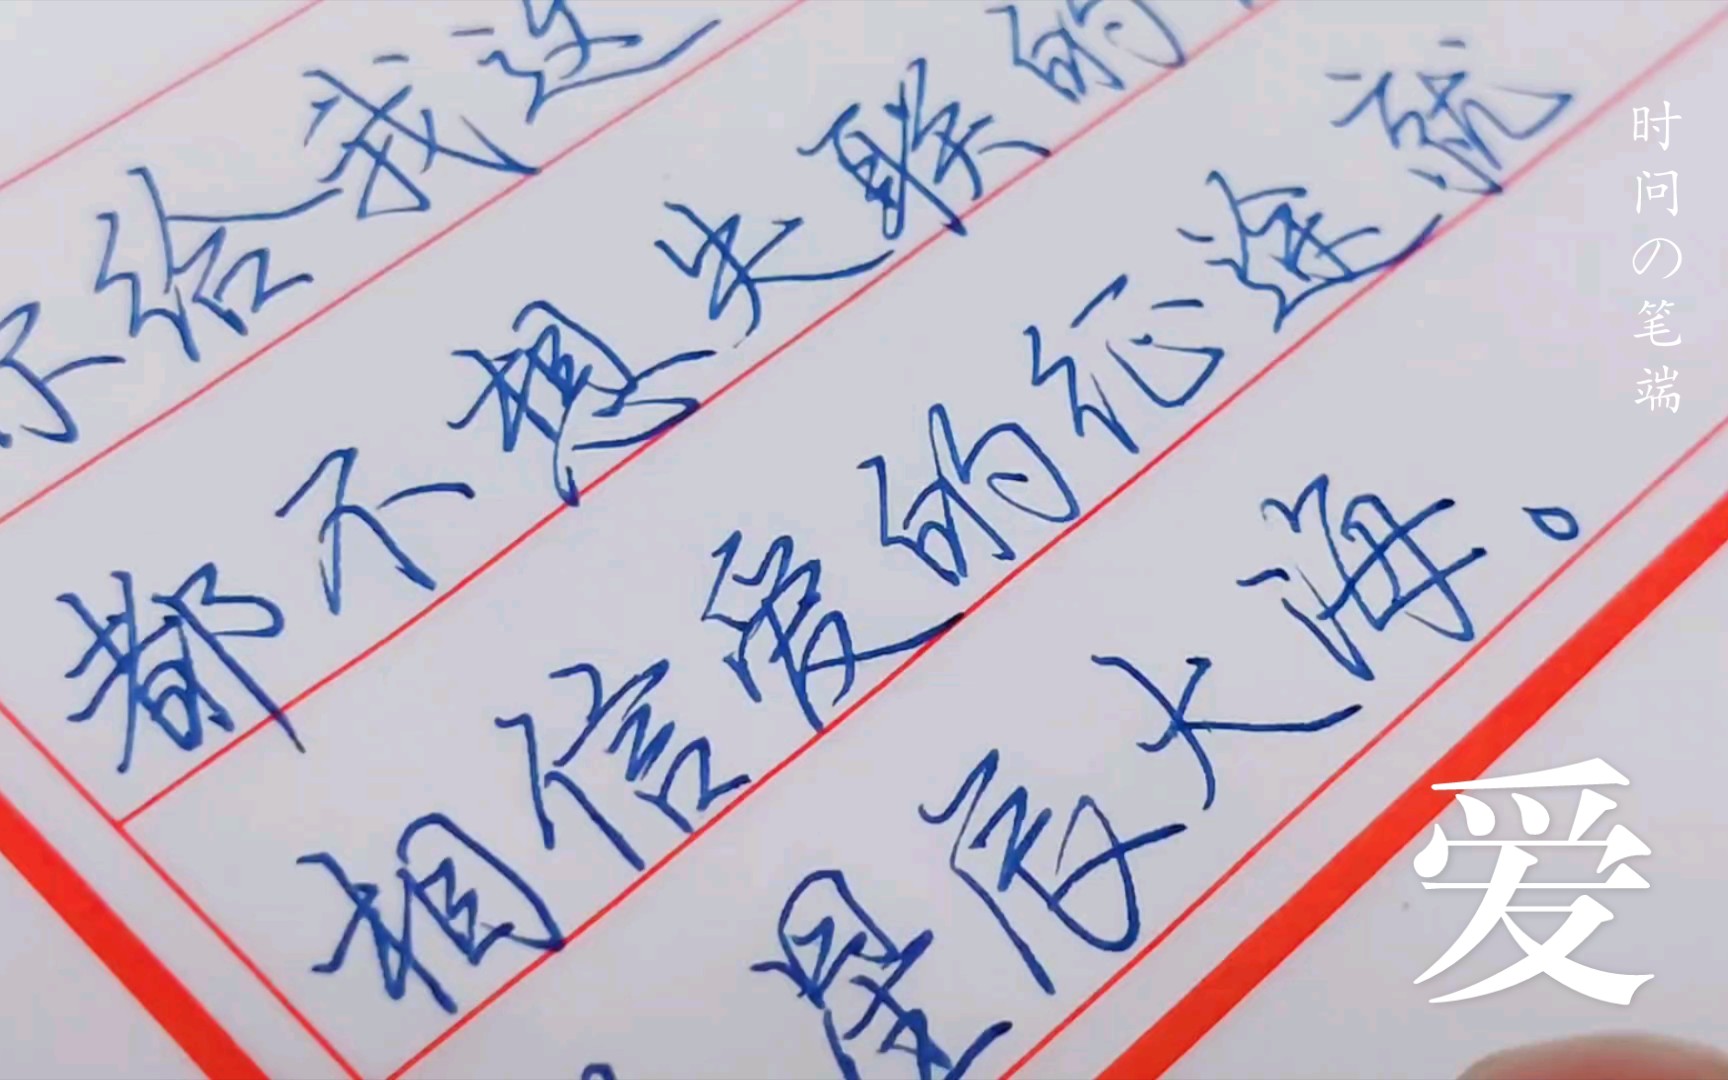 你给我连
都不想失联的
相信爱的征途就
星辰大海。
时间の笔端
爱